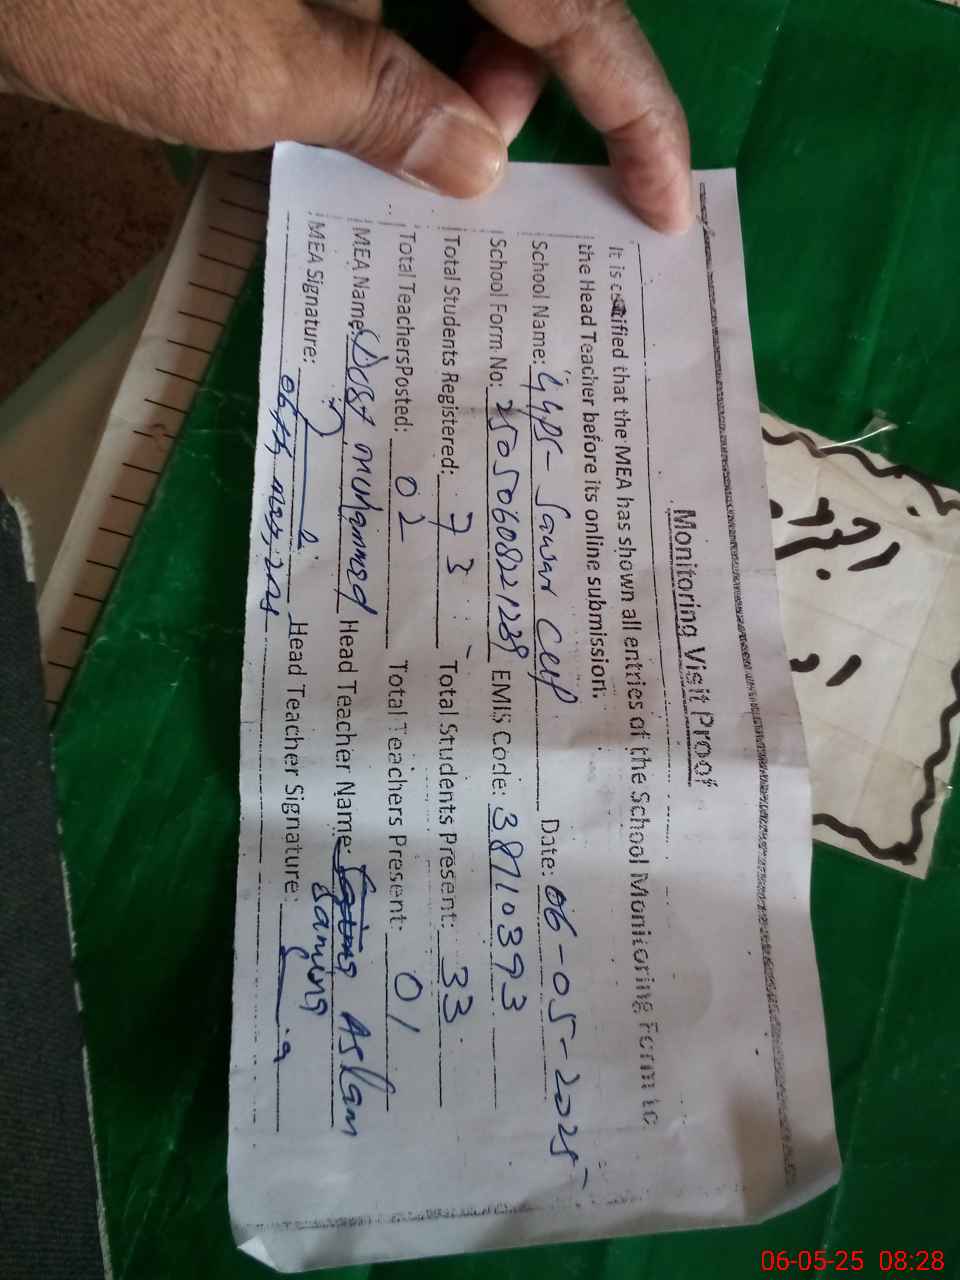 Monitoring Visit Proof
It is certified that the MEA has shown all entries of the School Monitoring Form to
the Head Teacher before its online submission.
School Name: GGPS - Sawar Date: 06-05-2025
School Form No: EMIS Code: 38710393
Total Students Registered: 73 Total Students Present: 33
Total Teachers Posted: 02 Total Teachers Present: 01
MEA Name: Dost Muhammed Head Teacher Name: Aslam
MEA Signature: Head Teacher Signature:
06-05-25 08:28